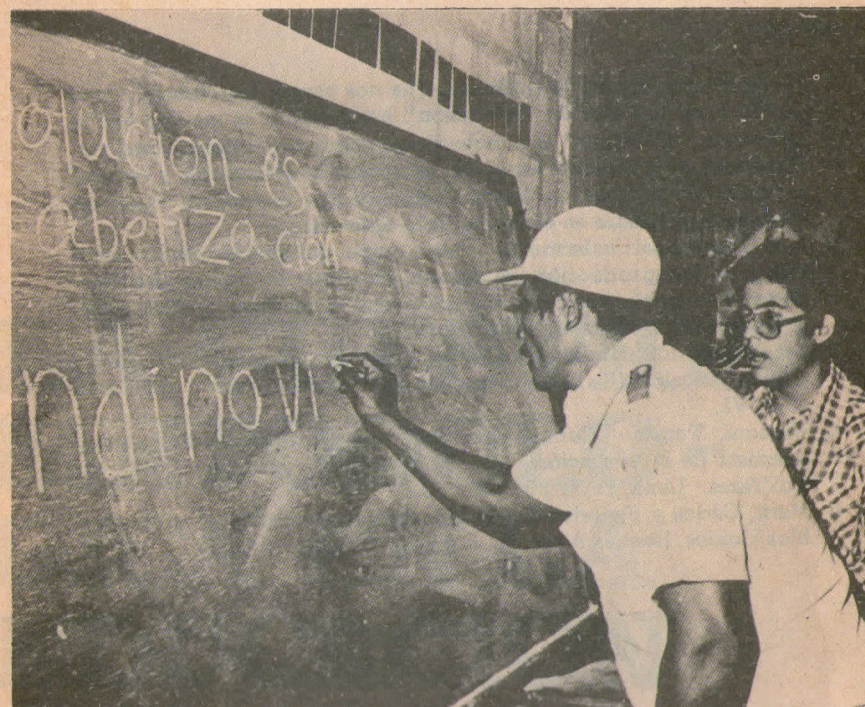 olucion es
fabetización
ndinovi